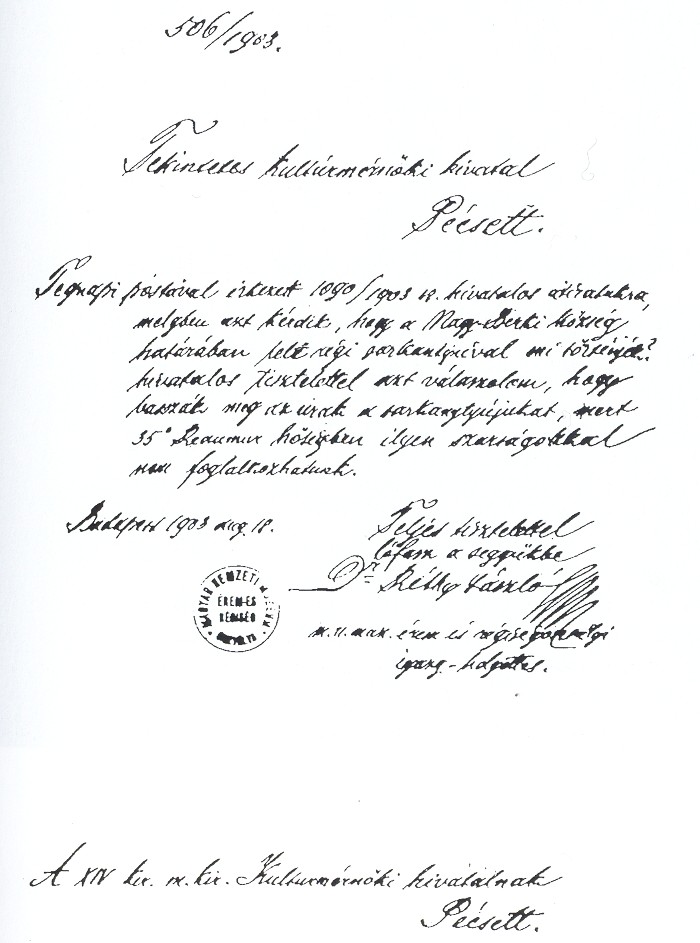 506/1903.
Tekintetes Kultúrmérnöki hivatal
Pécsett.
Tegnapi póstával érkezett 1090/1903 sz. hivatalos átiratukra,
melyben azt kérdik, hogy a Nagy-Berki község
határában lelt régi sarkantyúval mi történjék?
hivatalos tisztelettel azt válaszolom, hogy
basszák meg az urak a sarkantyújukat, mert
35° Reaumur hőségben ilyen szarságokkal
nem foglalkozhatunk.
Budapest 1903 aug. 18.
Teljes tisztelettel
lófasz a seggükbe
Dr Réthy László
MAGYAR NEMZETI MÚZEUM
ÉREM-ÉS
RÉGISÉG
m. n. muz. érem és régiségosztályi
igazg-helyettes.
A XIV ker. m. kir. Kulturmérnöki hivatalnak
Pécsett.